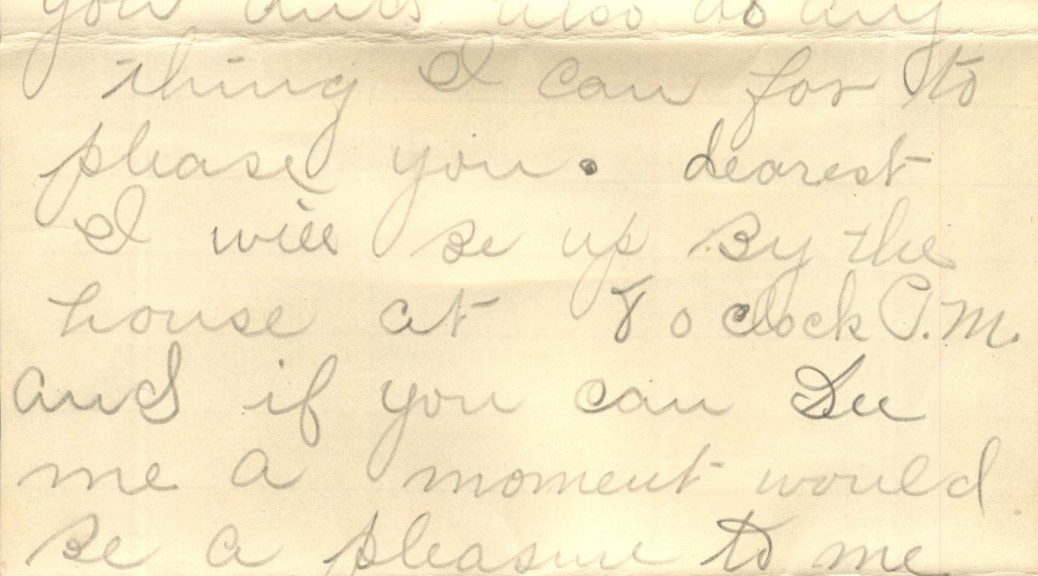 you and also do any
thing I can for to
please you. dearest
I will be up By the
house at 8 o clock P.M.
and if you can See
me a moment would
be a pleasure to me